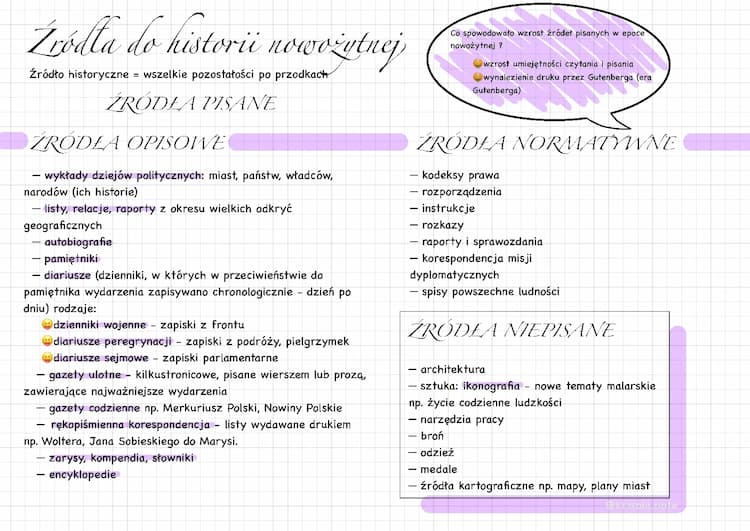 Źródła do historii nowożytnej
Źródło historyczne = wszelkie pozostałości po przodkach
ŹRÓDŁA PISANE
Co spowodowało wzrost źródeł pisanych w epoce
nowożytnej ?
😄wzrost umiejętności czytania i pisania
😄wynalezienie druku przez Gutenberga (era
Gutenberga)
ŹRÓDŁA OPISOWE
— wykłady dziejów politycznych: miast, państw, władców,
narodów (ich historie)
— listy, relacje, raporty z okresu wielkich odkryć
geograficznych
— autobiografie
— pamiętniki
— diariusze (dzienniki, w których w przeciwieństwie do
pamiętnika wydarzenia zapisywano chronologicznie - dzień po
dniu) rodzaje:
😄dzienniki wojenne - zapiski z frontu
😄diariusze peregrynacji - zapiski z podróży, pielgrzymek
😄diariusze sejmowe - zapiski parlamentarne
— gazety ulotne - kilkustronicowe, pisane wierszem lub prozą,
zawierające najważniejsze wydarzenia
— gazety codzienne np. Merkuriusz Polski, Nowiny Polskie
— rękopiśmienna korespondencja - listy wydawane drukiem
np. Woltera, Jana Sobieskiego do Marysi.
— zarysy, kompendia, słowniki
— encyklopedie
ŹRÓDŁA NORMATYWNE
— kodeksy prawa
— rozporządzenia
— instrukcje
— rozkazy
— raporty i sprawozdania
— korespondencja misji
dyplomatycznych
— spisy powszechne ludności
ŹRÓDŁA NIEPISANE
— architektura
— sztuka: ikonografia - nowe tematy malarskie
np. życie codzienne ludzkości
— narzędzia pracy
— broń
— odzież
— medale
— źródła kartograficzne np. mapy, plany miast